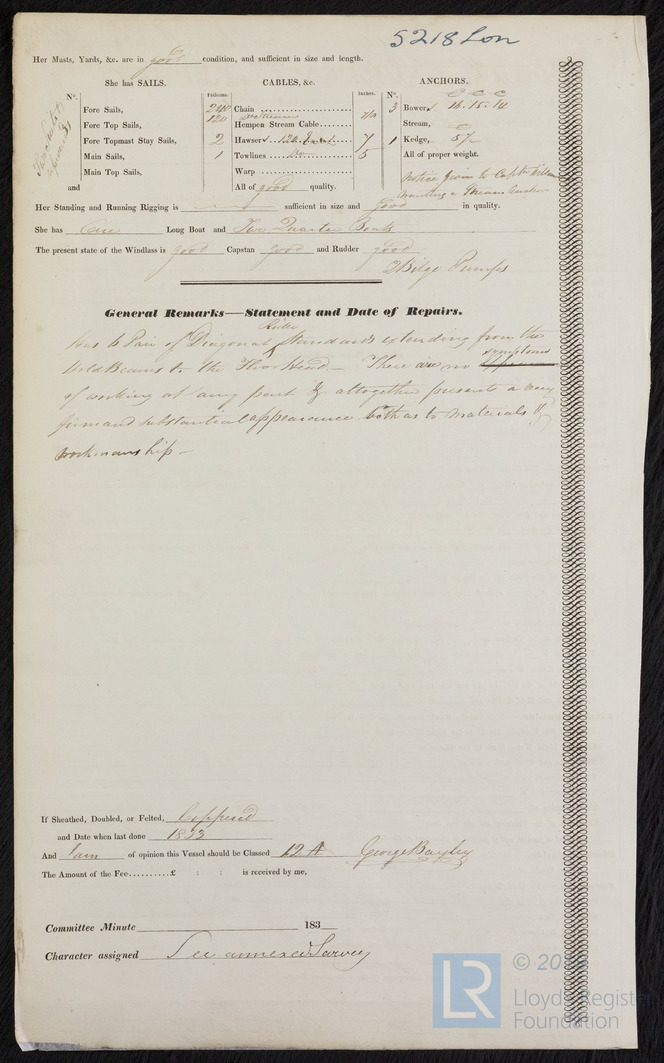 5218 Lon
Her Masts, Yards, &c. are in good condition, and sufficient in size and length.
She has SAILS.
CABLES, &c.
ANCHORS.
N°.
Fathoms.
Inches.
N°.
Fore Sails,
240
Chain
3 Bowers 16. 15. 14
Fore Top Sails,
120
Hempen Stream Cable
7/8
Stream,
Fore Topmast Stay Sails,
2
Hawsers 120
7
1 Kedge, 5
Main Sails,
1
Towlines Do
5
All of proper weight.
Main Top Sails,
Warp
and
All of good quality.
Notice given to Captn
Her Standing and Running Rigging is sufficient in size and good in quality.
She has One Long Boat and Two Quarter Boats
The present state of the Windlass is good Capstan good and Rudder good
2 Bilge Pumps
General Remarks—Statement and Date of Repairs.
Rider
Has 6 Pair of Diagonal Standards extending from the
symptoms
Hold Beams to the Floor Head – There are no
of working at any part & altogether presents a very
firm and substantial appearance both as to materials &
workmanship –
If Sheathed, Doubled, or Felted, Coppered
and Date when last done 1833
And I am of opinion this Vessel should be Classed 12 A George Bayley
The Amount of the Fee..........£ : : is received by me,
Committee Minute 183
Character assigned See annexed Survey
LR
Lloyd's Register
Foundation